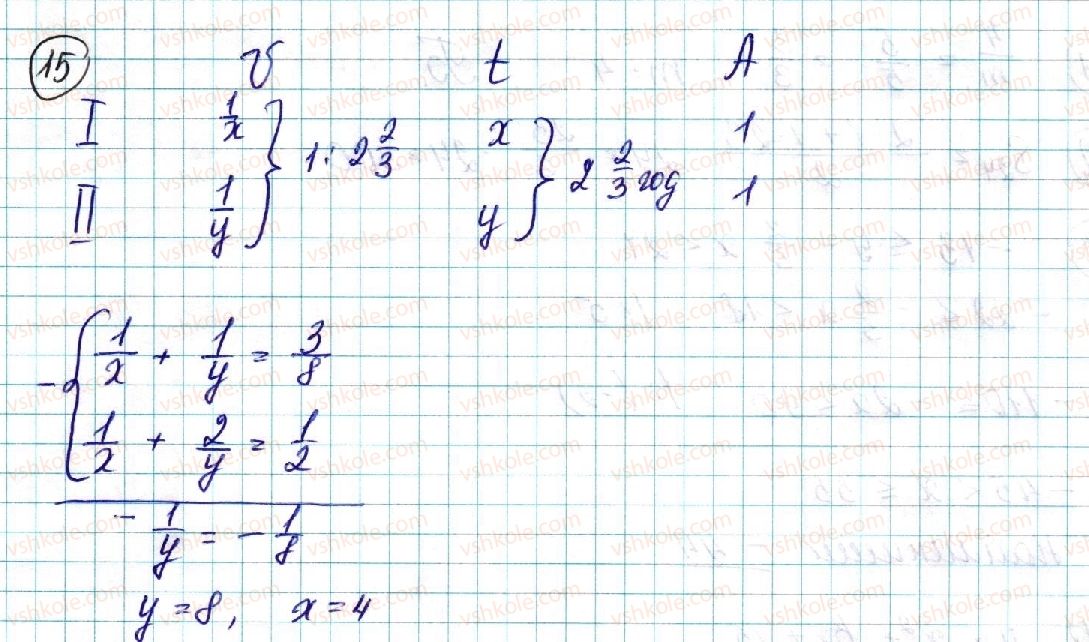 15 V t A
I 1/x } 1 : 2 2/3 x } 2 2/3 год 1
II 1/y y 1
- { 1/x + 1/y = 3/8
1/x + 2/y = 1/2
- 1/y = - 1/8
y = 8, x = 4
vshkole.com